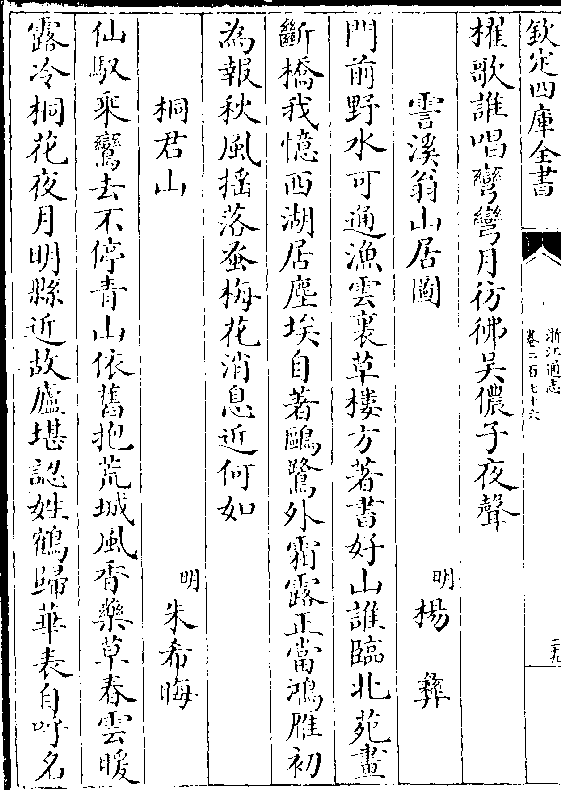 欽定四庫全書
浙江通志
卷二百七十六
二九
櫂歌誰唱彎彎月彷彿吳儂子夜聲
雲溪翁山居圖
明
楊彝
門前野水可通漁雲裏草樓方著書好山誰臨北苑畫
斷橋我憶西湖居塵埃自著鷗鷺外霜露正當鴻雁初
為報秋風揺落蚤梅花消息近何如
桐君山
明
朱希晦
仙馭乘鸞去不停青山依舊抱荒城風香藥草春雲暖
露冷桐花夜月明縣近故廬堪認姓鶴歸華表自呼名